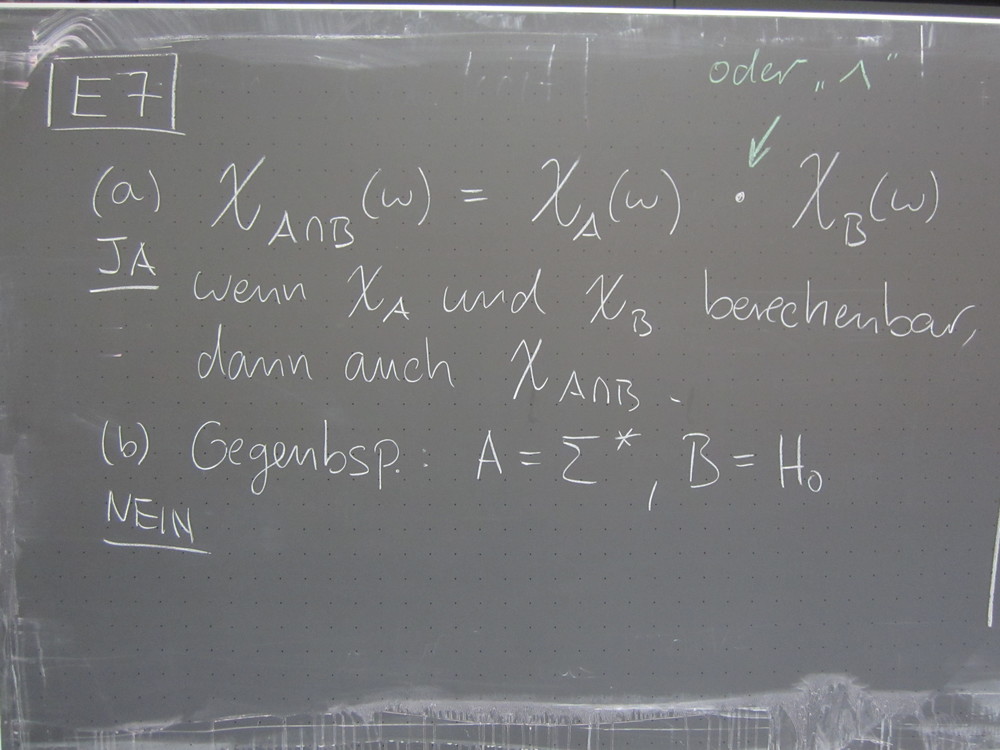 E7
oder „∧“
(a) χ_{A∩B}(w) = χ_A(w) · χ_B(w)
JA
wenn χ_A und χ_B berechenbar,
dann auch χ_{A∩B}.
(b) Gegenbsp.: A = Σ*, B = H₀
NEIN